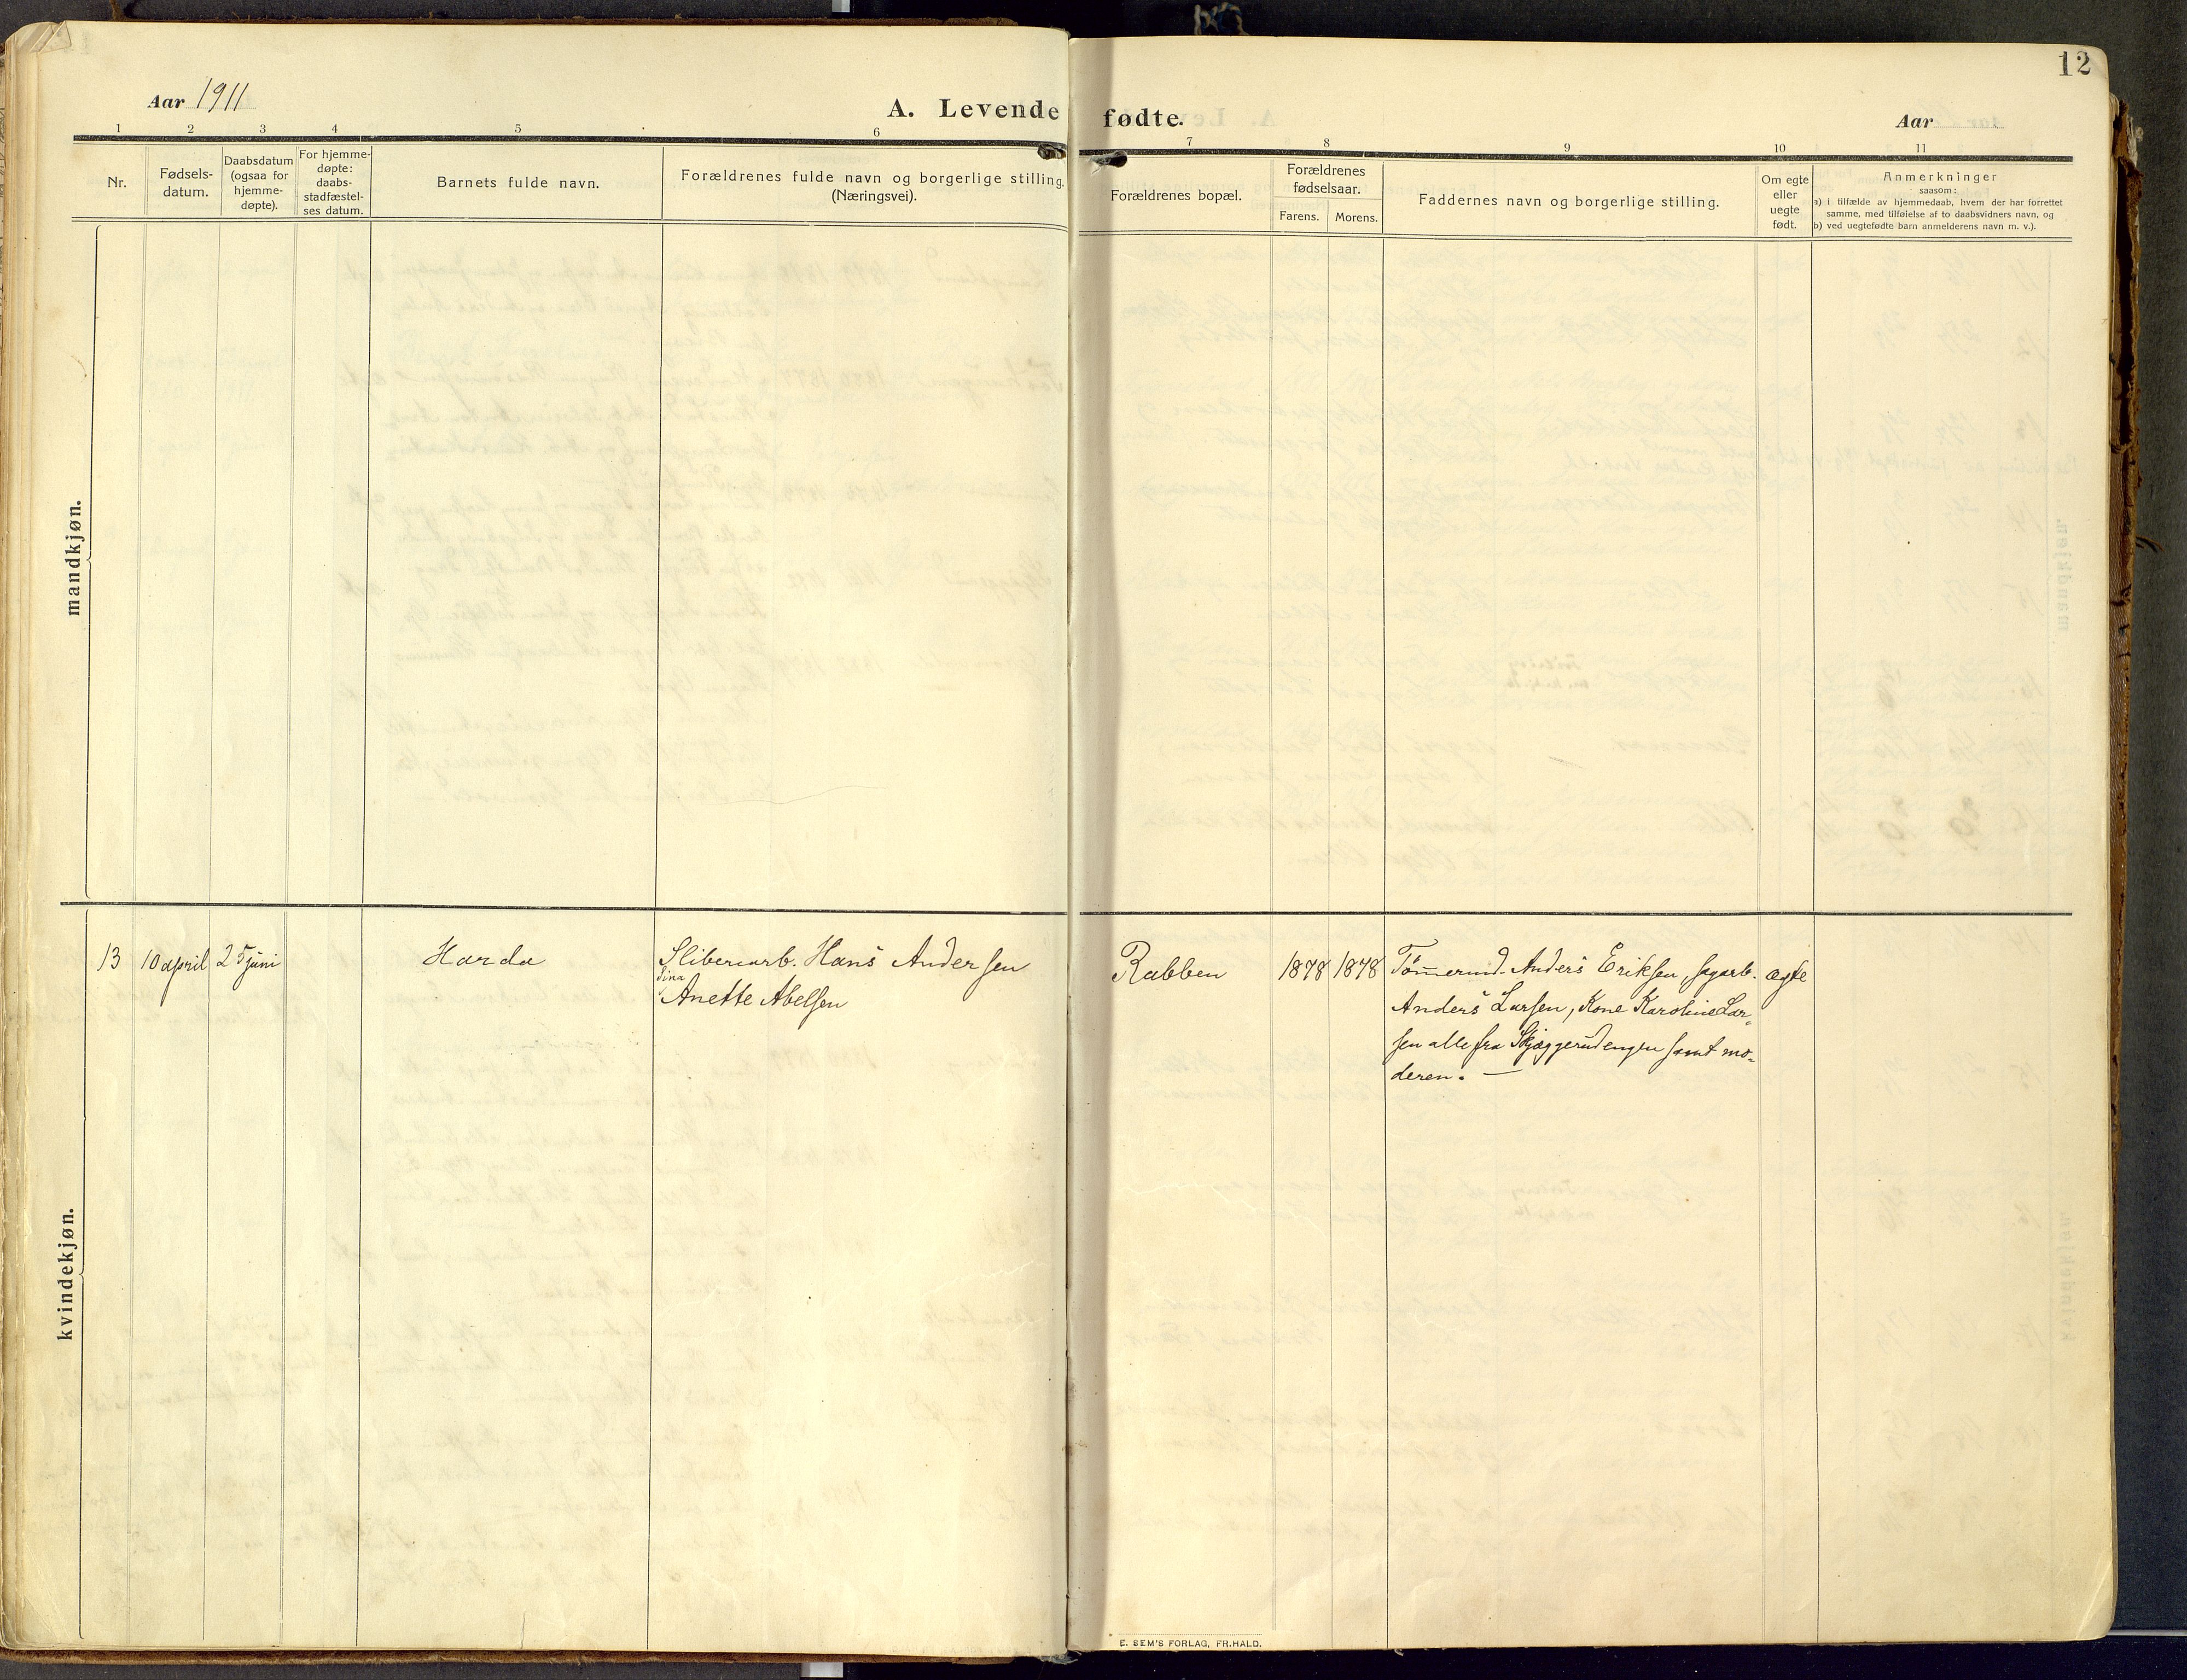 12
Aar 1911
A. Levende fødte.
Aar
1 2 3 4 5 6 7 8 9 10 11
Nr.
Fødsels-
datum.
Daabsdatum
(ogsaa for
hjemme-
døpte).
For hjemme-
døpte:
daabs-
stadfæstel-
ses datum.
Barnets fulde navn.
Forældrenes fulde navn og borgerlige stilling.
(Næringsvei).
Forældrenes bopæl.
Forældrenes
fødselsaar.
Farens. Morens.
Faddernes navn og borgerlige stilling.
Om egte
eller
uegte
født.
Anmerkninger
saasom:
a) i tilfælde av hjemmedaab, hvem der har forrettet
samme, med tilføielse af to daabsvidners navn, og
b) ved uegtefødte barn anmelderens navn m. v.).
mandkjøn.
kvindekjøn.
13 10 april 25 juni Harda
Sliberiarb. Hans Andersen
Sina
Anette Abelsen
Rabben 1878 1878
Tømmermd. Anders Eriksen, sagarb.
Anders Larsen, Kone Karoline Lar-
sen alle fra Skjæggerudengen samt mo-
deren. —
ægte
E. SEM'S FORLAG, FR.HALD.